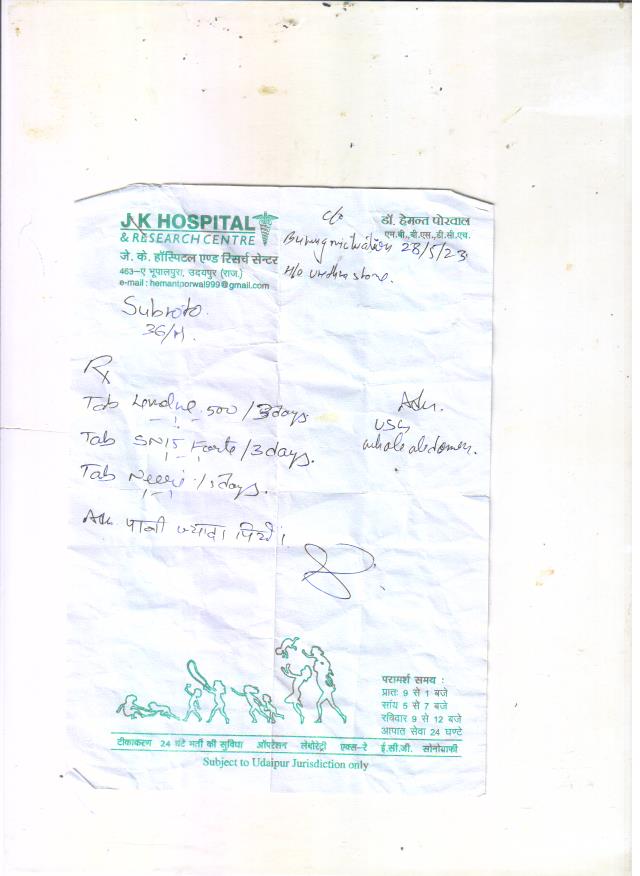 JK HOSPITAL
& RESEARCH CENTRE
जे. के. हॉस्पिटल एण्ड रिसर्च सेन्टर
463-ए भूपालपुरा, उदयपुर (राज.)
e-mail : hemantporwal999@gmail.com
डॉ. हेमन्त पोरवाल
एम.बी.,बी.एस.,डी.सी.एच.
c/o
Burning micturition 28/5/23
H/o urethra stone.
Subroto.
36/M.
Rx
Tab 500 / 3 days
Tab Forte / 3 days.
Tab Neeri / days.
Adv.
USG
whole abdomen.
Adv. पानी ज्यादा पियें।
परामर्श समय :
प्रातः 9 से 1 बजे
सांय 5 से 7 बजे
रविवार 9 से 12 बजे
आपात सेवा 24 घण्टे
टीकाकरण 24 घंटे भर्ती की सुविधा ऑपरेशन लेबोरेट्री एक्स-रे ई.सी.जी. सोनोग्राफी
Subject to Udaipur Jurisdiction only